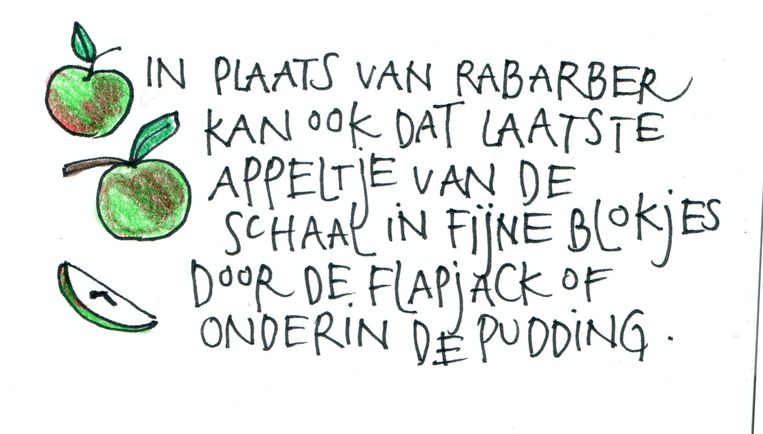 IN PLAATS VAN RABARBER
KAN OOK DAT LAATSTE
APPELTJE VAN DE
SCHAAL IN FIJNE BLOKJES
DOOR DE FLAPJACK OF
ONDERIN DE PUDDING.